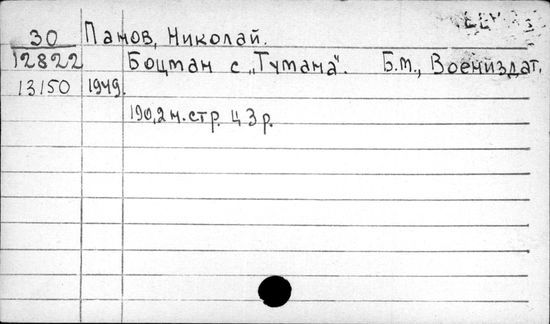 30 Панов, Николай.
12822 Боцман с „Тумана“. Б.м., Воениздат,
13150 1949.
190,2 н.стр. ц 3 р.